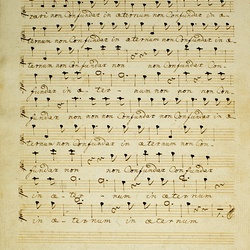 ravi non Confundar in æternum non Confundar in æ-
ternum non Confundar in æternum non Confundar in æ-
ternum non Confundar non non Confundar Con
fundar in æ ter num non non Con
fundar non non non confundar non Confundar in æ
ternum non Confundar in æternum non Con
fundar non non Confundar Confundar
in æ ter num in æternum
in æternum in æternum